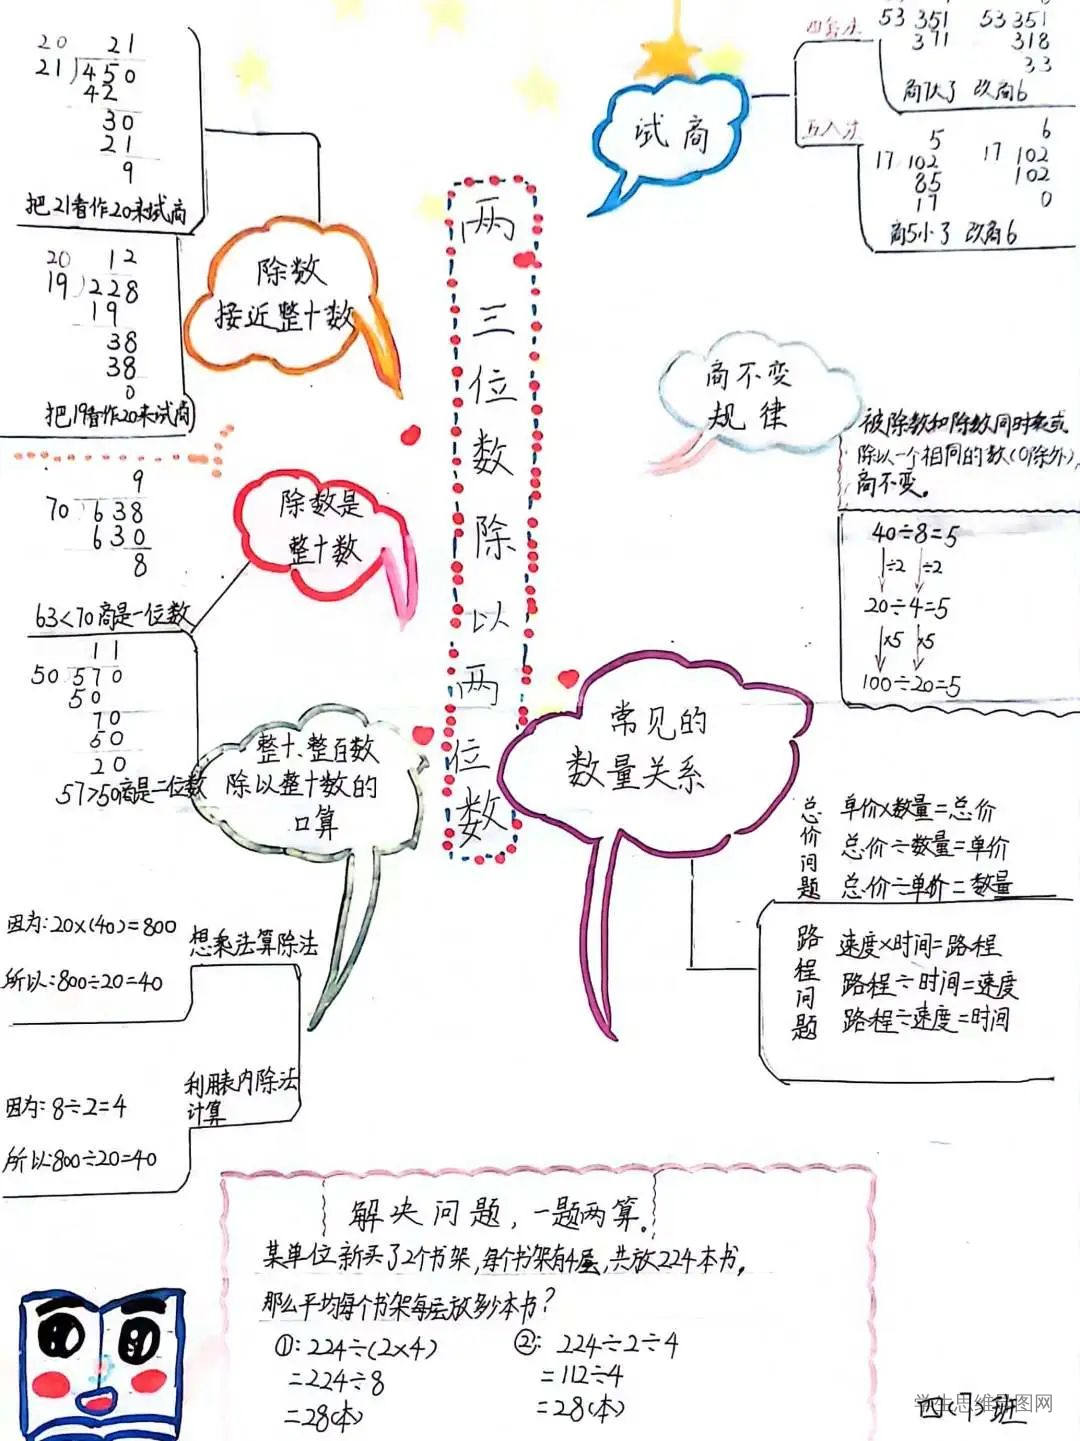 两三位数除以两位数
20 21
21 450
42
30
21
9
把21看作20来试商
20 12
19 228
19
38
38
0
把19看作20来试商
除数
接近整十数
9
70 638
630
8
63<70商是一位数
11
50 570
50
70
50
20
57>50商是二位数
除数是
整十数
整十、整百数
除以整十数的
口算
想乘法算除法
因为:20×(40)=800
所以:800÷20=40
利用表内除法
计算
因为:8÷2=4
所以:800÷20=40
试商
四舍法
53 351 53 351
371 318
33
商大了 改商6
五入法
5 6
17 102 17 102
85 102
17 0
商5小了 改商6
商不变
规律
被除数和除数同时乘或
除以一个相同的数(0除外),
商不变。
40÷8=5
÷2 ÷2
20÷4=5
×5 ×5
100÷20=5
常见的
数量关系
总价问题
单价×数量=总价
总价÷数量=单价
总价÷单价=数量
路程问题
速度×时间=路程
路程÷时间=速度
路程÷速度=时间
解决问题,一题两算。
某单位新买了2个书架,每个书架有4层,共放224本书,
那么平均每个书架每层放多少本书?
①:224÷(2×4)
=224÷8
=28(本)
②: 224÷2÷4
=112÷4
=28(本)
四(7)班
学生思维导图网